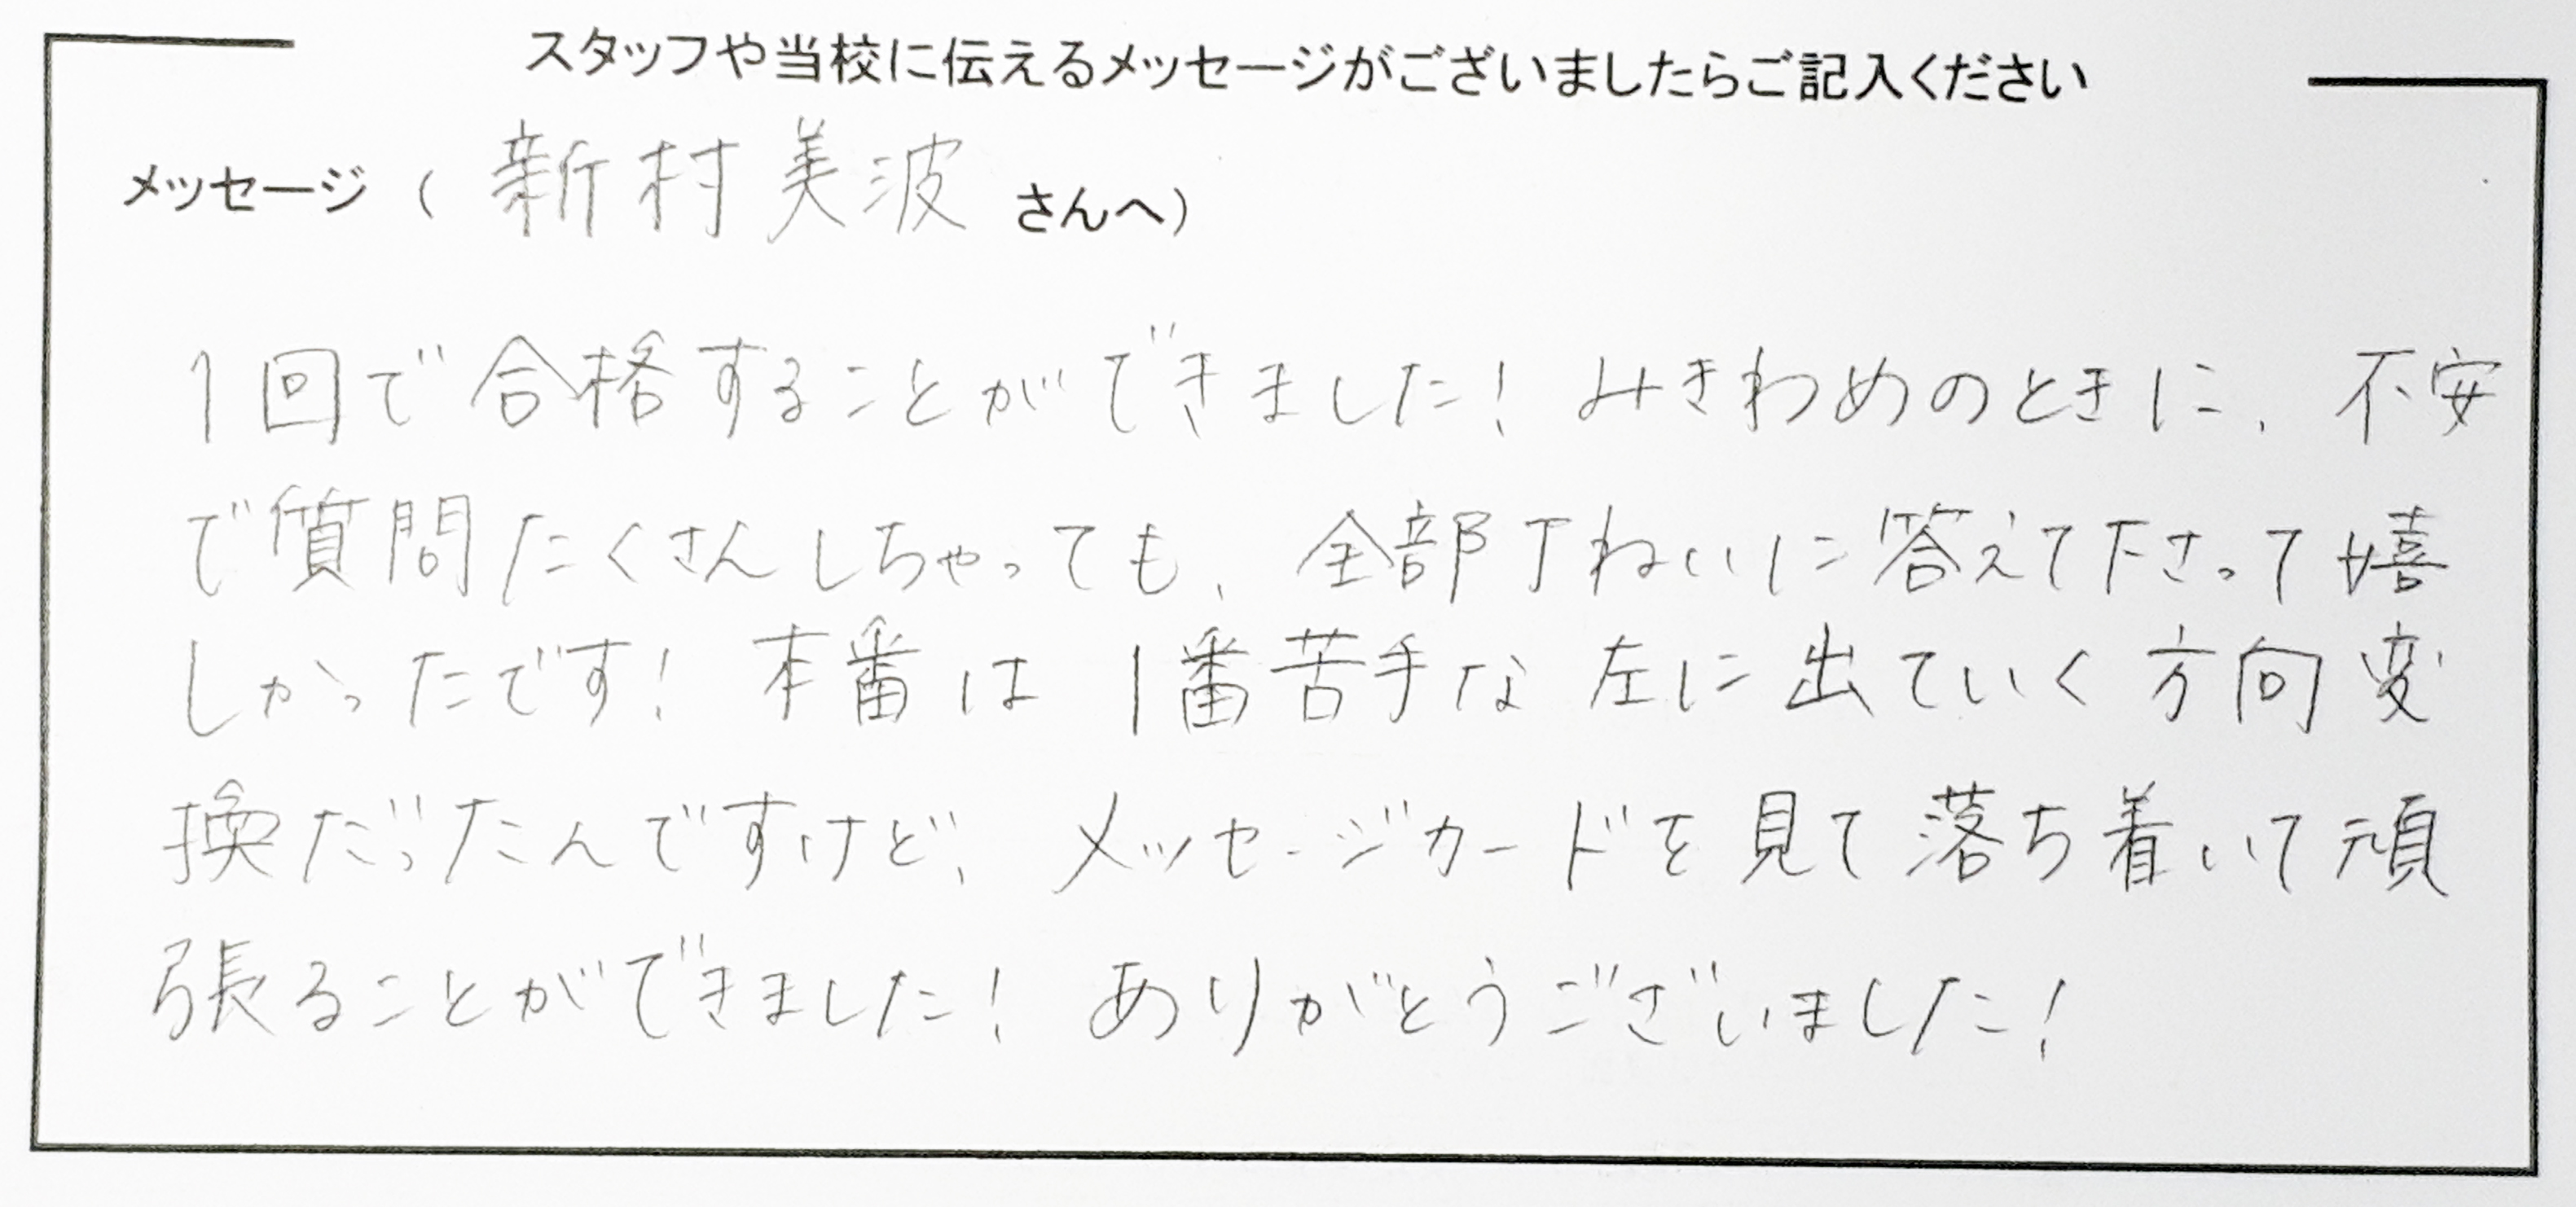 スタッフや当校に伝えるメッセージがございましたらご記入ください
メッセージ（ 新村美波 さんへ）
1回で合格することができました！みきわめのときに、不安
で質問たくさんしちゃっても、全部丁ねいに答えて下さって嬉
しかったです！本番は1番苦手な左に出ていく方向変
換だったんですけど、メッセージカードを見て落ち着いて頑
張ることができました！ありがとうございました！